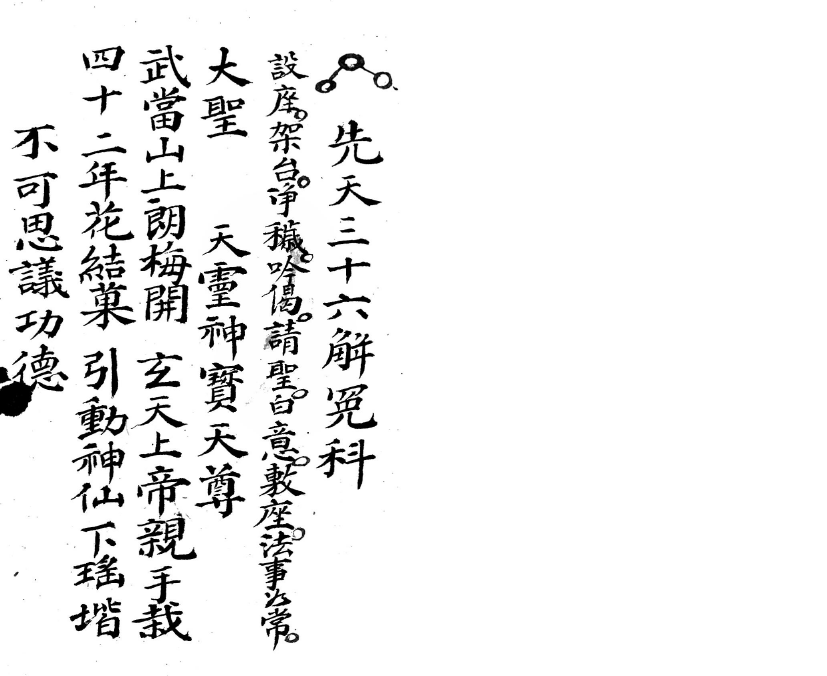 先天三十六解冤科
設座。架台。淨穢。吟偈。請聖。白意。敷座。法事如常。
大聖 天靈神寶天尊
武當山上朗梅開 玄天上帝親手栽
四十二年花結菓 引動神仙下瑶堦
不可思議功德